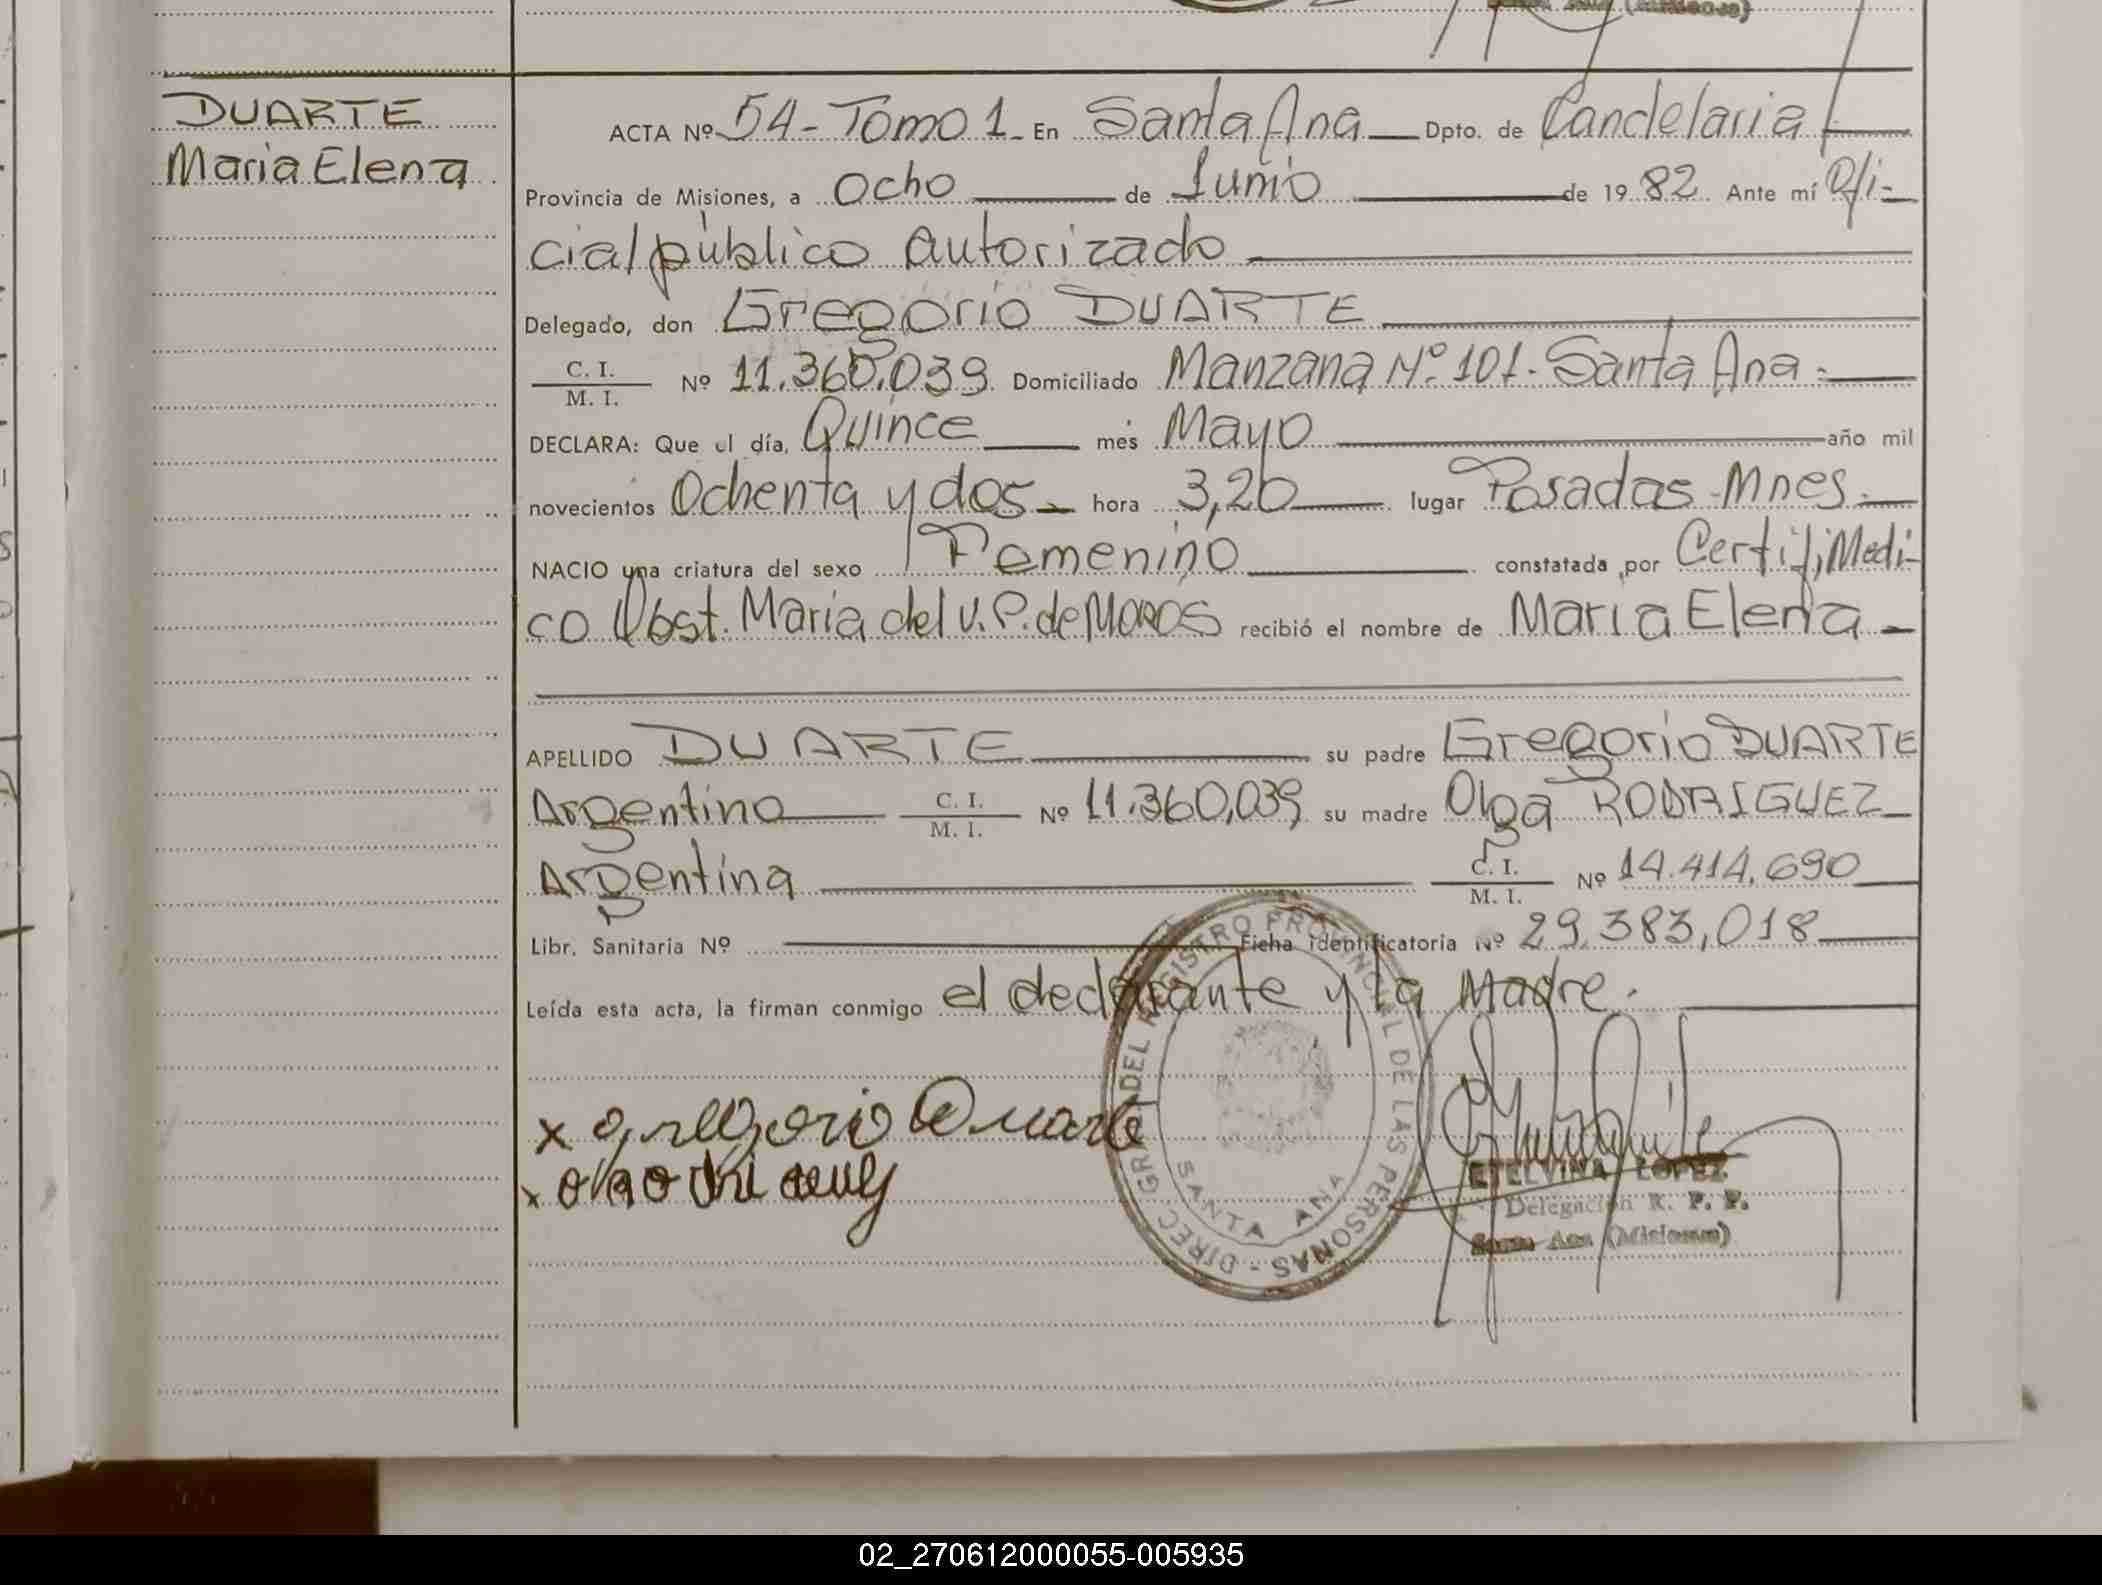 DUARTE
Maria Elena
ACTA Nº 54 - Tomo 1 - En Santa Ana Dpto. de Candelaria
Provincia de Misiones, a Ocho de Junio de 1982. Ante mí Ofi-
cial público autorizado
Delegado, don Gregorio DUARTE
C. I.
M. I. Nº 11.360,039 Domiciliado Manzana Nº 101 - Santa Ana -
DECLARA: Que el día, Quince mes Mayo año mil
novecientos Ochenta y dos - hora 3,20 lugar Posadas - Mnes -
NACIO una criatura del sexo Femenino constatada por Certif, Medi-
co Obst. Maria del v. P. de recibió el nombre de Maria Elena -
APELLIDO DUARTE su padre Gregorio DUARTE
Argentino C. I.
M. I. Nº 11.360,039 su madre Olga RODRIGUEZ -
Argentina C. I.
M. I. Nº 14.414,690
Libr. Sanitaria Nº Ficha identificatoria Nº 29,383,018
Leída esta acta, la firman conmigo el declarante y la Madre.
x gregorio Duarte
x
DIREC. GRAL. DEL REGISTRO PROVINCIAL DE LAS PERSONAS -
SANTA ANA
ETELVINA LOPEZ
Delegación R. P. P.
Santa Ana (Misiones)
02_270612000055-005935